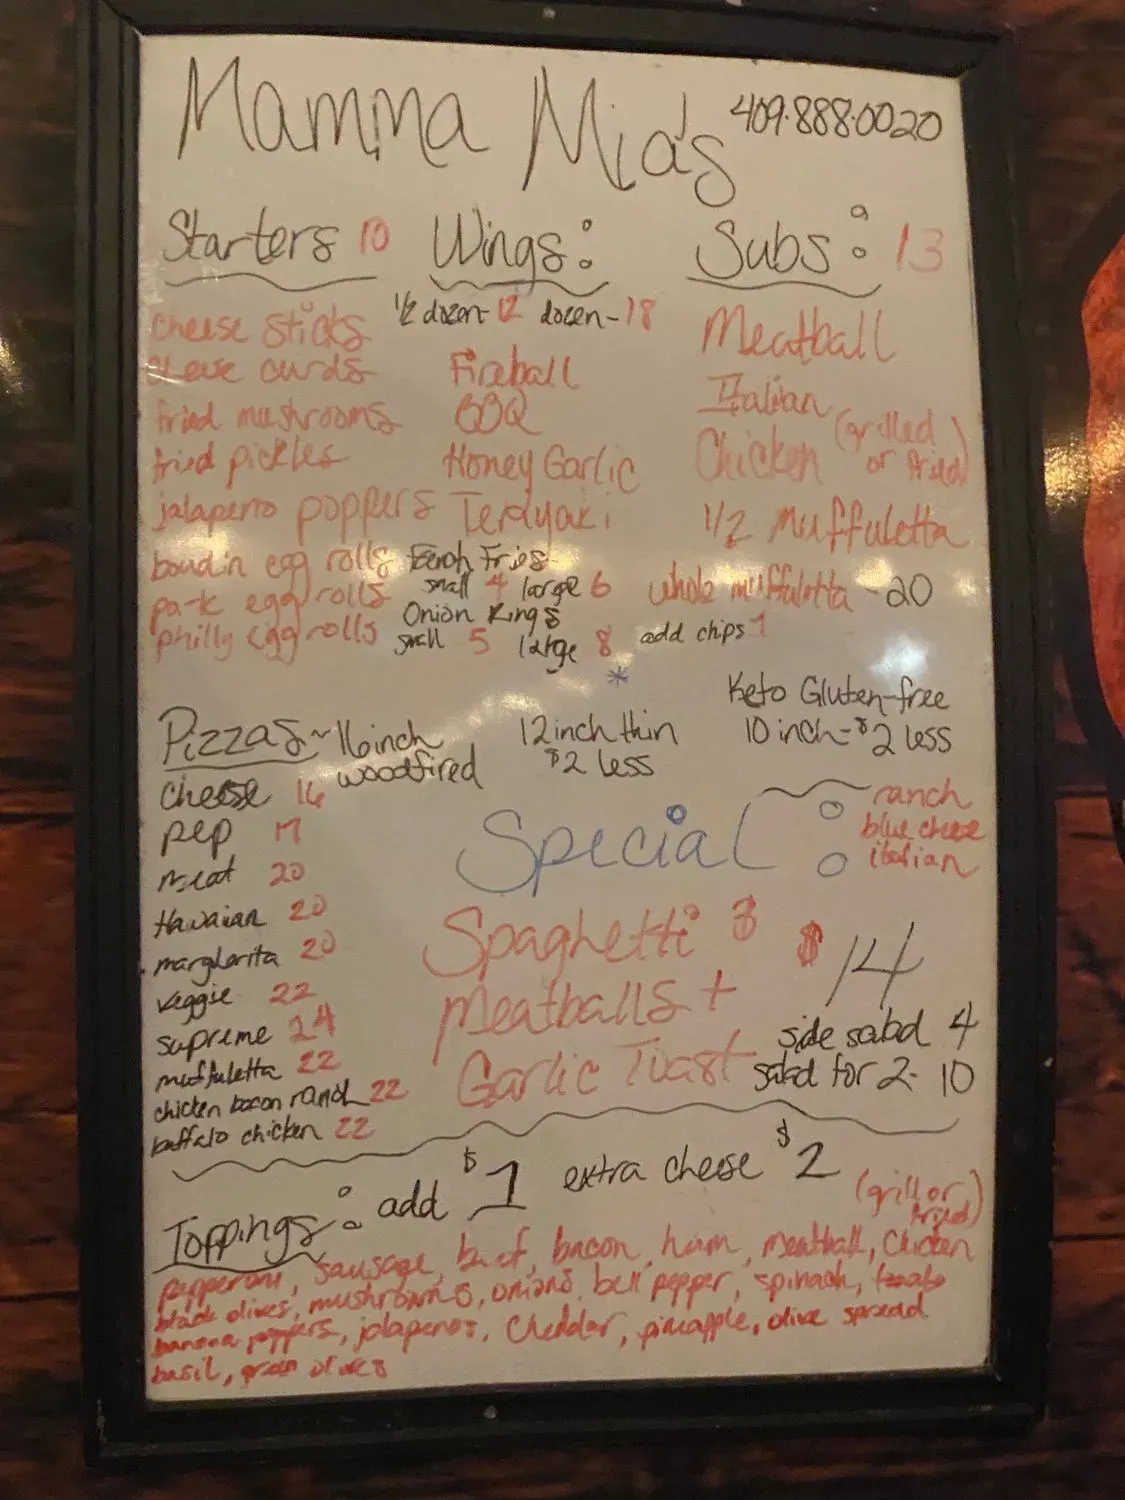 Mamma Mia's 409.888.0020
Starters 10
cheese sticks
cheese curds
fried mushrooms
fried pickles
jalapeno poppers
boudin egg rolls
pork egg rolls
philly egg rolls
Wings:
1/2 dozen- 12 dozen- 18
Fireball
BBQ
Honey Garlic
Teriyaki
French Fries
small 4 large 6
Onion Rings
small 5 large 8
*
Subs: 13
Meatball
Italian
Chicken (grilled or fried)
1/2 Muffuletta
whole muffuletta - 20
add chips 1
Pizzas~ 16 inch woodfired
12 inch thin
$2 less
Keto Gluten-free
10 inch- $2 less
cheese 16
pep 17
meat 20
Hawaiian 20
margherita 20
veggie 22
supreme 24
muffuletta 22
chicken bacon ranch 22
buffalo chicken 22
Special:
Spaghetti &
Meatballs +
Garlic Toast
$14
ranch
blue cheese
italian
side salad 4
salad for 2- 10
Toppings: add $1 extra cheese $2
pepperoni, sausage, beef, bacon, ham, meatball, chicken (grill or fried)
black olives, mushrooms, onions, bell pepper, spinach, tomato
banana peppers, jalapenos, Cheddar, pineapple, olive spread
basil, green olives